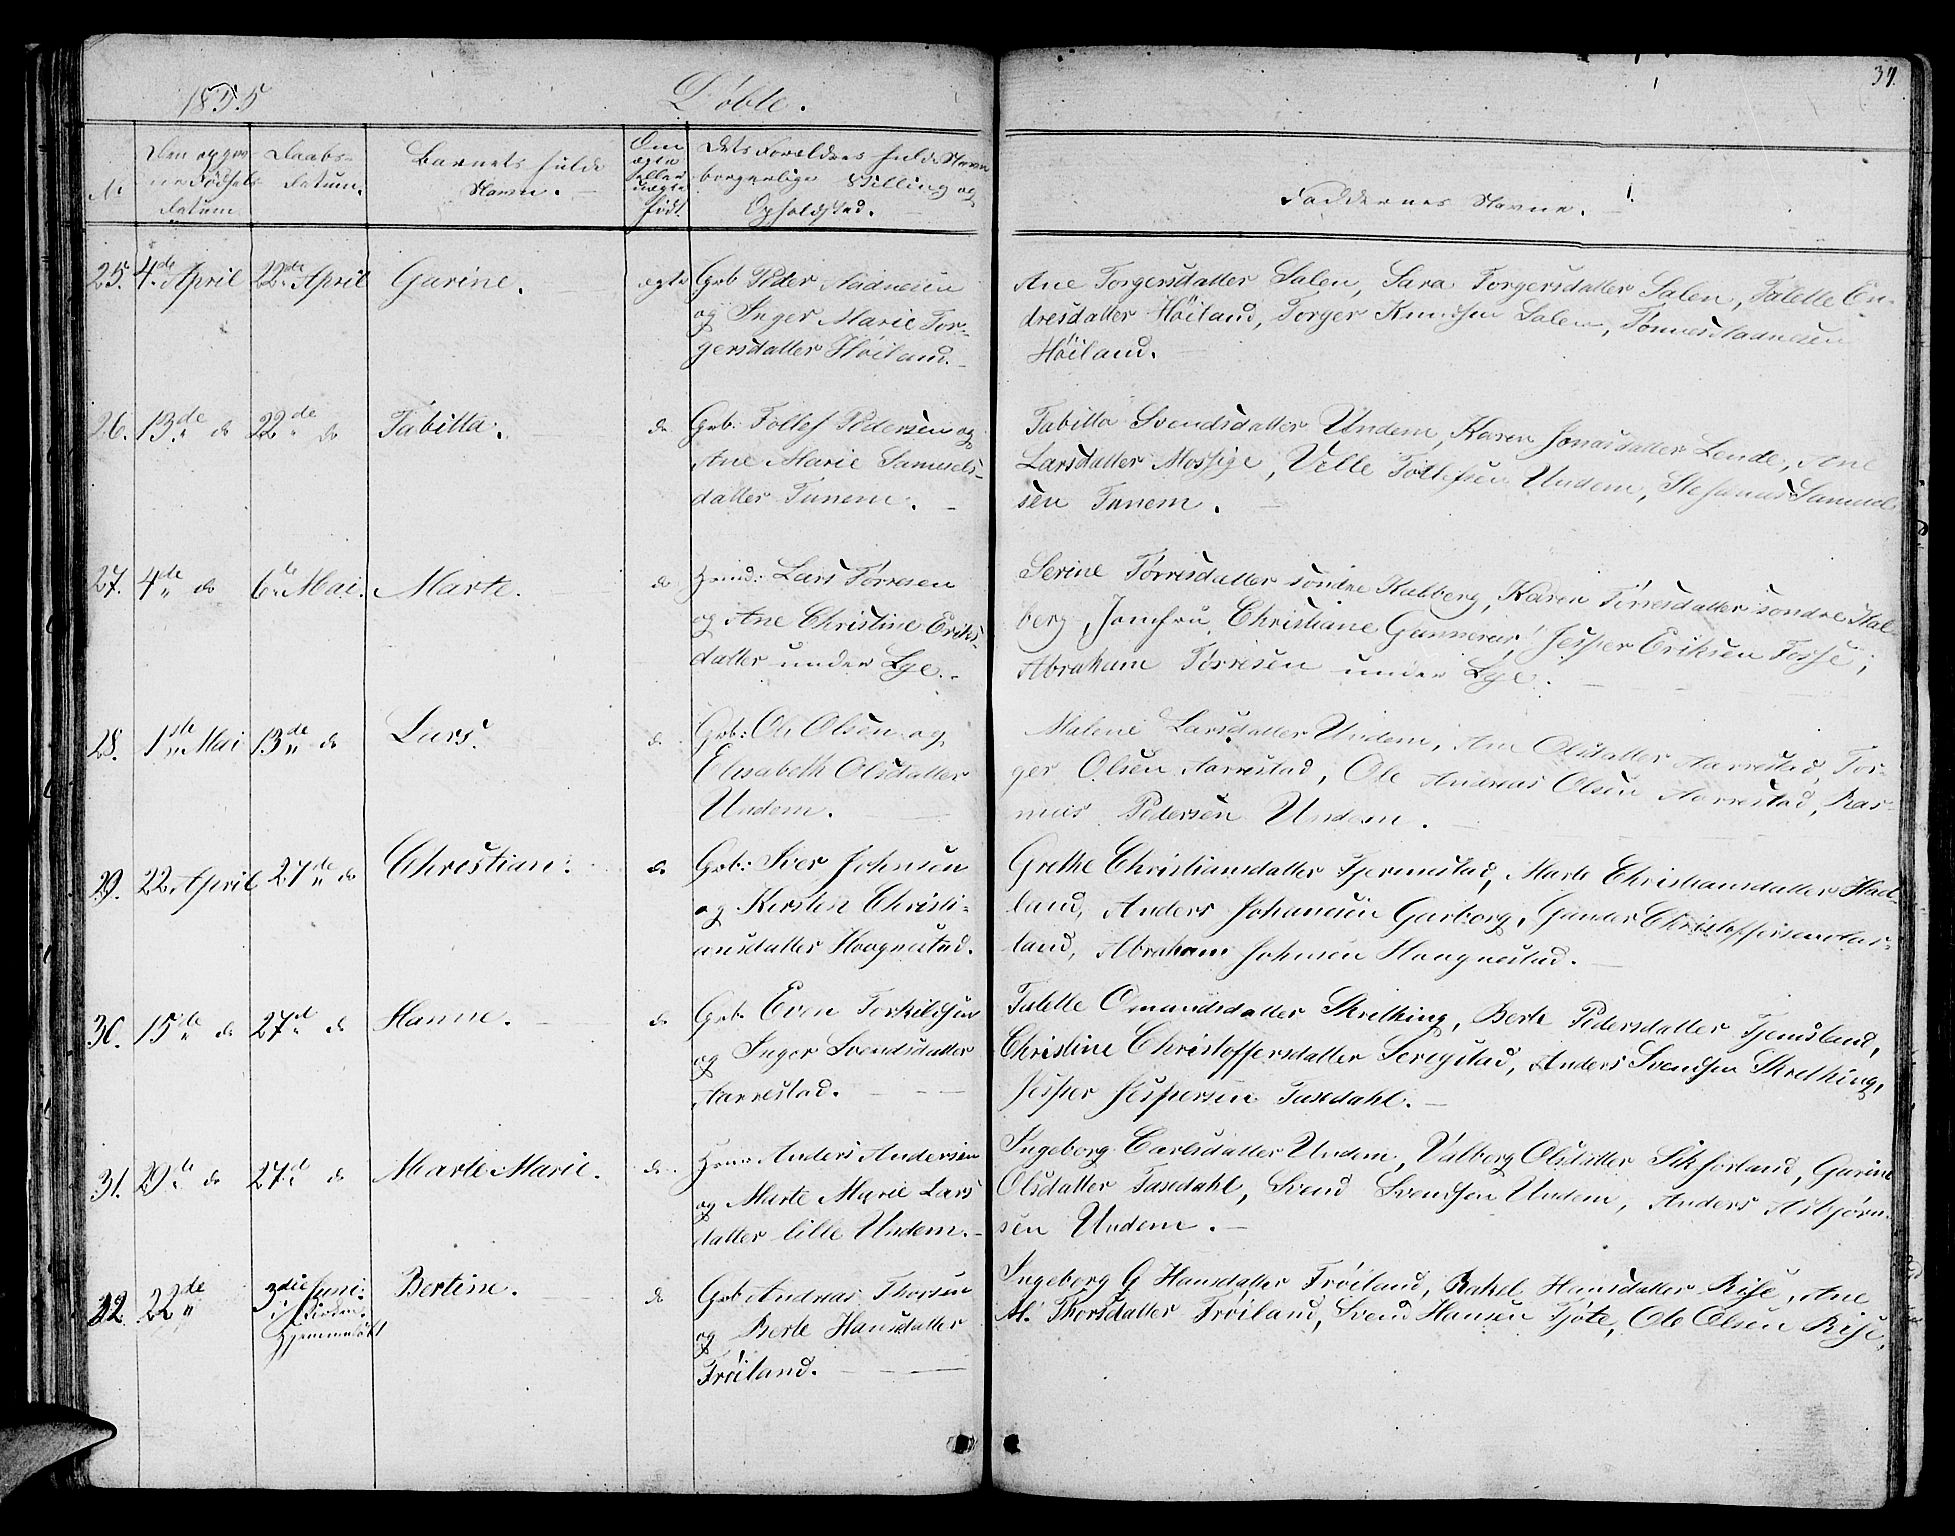 1855 Døbte. 34.
No Den opgivne Fødsels Datum Daabs-Datum. Barnets fulde Navn. Om ægte eller uægte født Dets Forældres fulde Navn borgerlige Stilling og Opholdsted. Faddernes Navne.
25. 4de April 22de April Garine. ægte Grb Peder Aadnesen
og Inger Marie Tor-
gersdatter Høiland.
Ane Torgersdatter Salen, Sara Torgersdatter Salen, Talette En-
dresdatter Høiland, Torger Knudsen Salen, Tønnes
Høiland.
26. 13de do 22de do Tabitta. do Grb: Tollef Pedersen og
Ane Marie Samuels-
datter Tunem.
Tabitta Svendsdatter Undem, Karen Jonasdatter Lende, Ane
Larsdatter Mossige, Velle Tollefsen Undem, Stefanus Samuel-
sen Tunem.
27. 4de do 6te Mai. Marte. do Huusm: Lars Tørresen
og Ane Christine Eriks-
datter under Lye.
Serine Tørresdatter søndre Kalberg, Karen Tørresdatter søndre Kal-
berg, Jomfru Christiane Gunnerus, Jesper Eriksen Fosse,
Abraham Tørresen under Lye.
28. 1ste Mai 13de do Lars. do Grb: Ole Olsen og
Elisabeth Olsdatter
Undem.
Malene Larsdatter Undem, Ane Olsdatter Aarrestad, Tor-
ger Olsen Aarrestad, Ole Andreas Olsen Aarrestad, Ras-
mus Pedersen Undem.
29. 22. April 27de do Christian. do Grb: Iver Johnsen
og Kirsten Christi-
ansdatter Haagnestad.
Grethe Christiansdatter Tjermestad, Marte Christiansdatter Had-
land, Anders Johanesen Garborg, Gunder Christoffersen
land, Abraham Johnsen Haagnestad.
30. 15de do 27de do Hanne. do Grb. Even Torkildsen
og Inger Svendsdatter
Aarrestad.
Talette Omundsdatter Skretking, Berte Pedersdatter Tjemsland,
Christine Christoffersdatter Seregstad, Anders Svendsen Skretking,
Jesper Jespersen Tasedahl.
31. 29de do 27de do Marte Marie. do Huusm Anders Andersen
og Marte Marie Lars
datter lille Undem.
Ingeborg Carlsdatter Undem, Valborg Olsdatter Sikførland, Garine
Olsdatter Tasedahl, Svend Svendsen Undem, Anders Asbjørn-
sen Undem.
32. 22de 3die Juni. i Kirken. Hjemmedøbt Bertine. do Grb Andreas Thorsen
og Berte Hansdatter
Frøiland.
Ingeborg G Hansdatter Frøiland, Rakel Hansdatter Risse, Ane
M. Thorsdatter Frøiland, Svend Hansen Tjøte, Ole Olsen Risse,